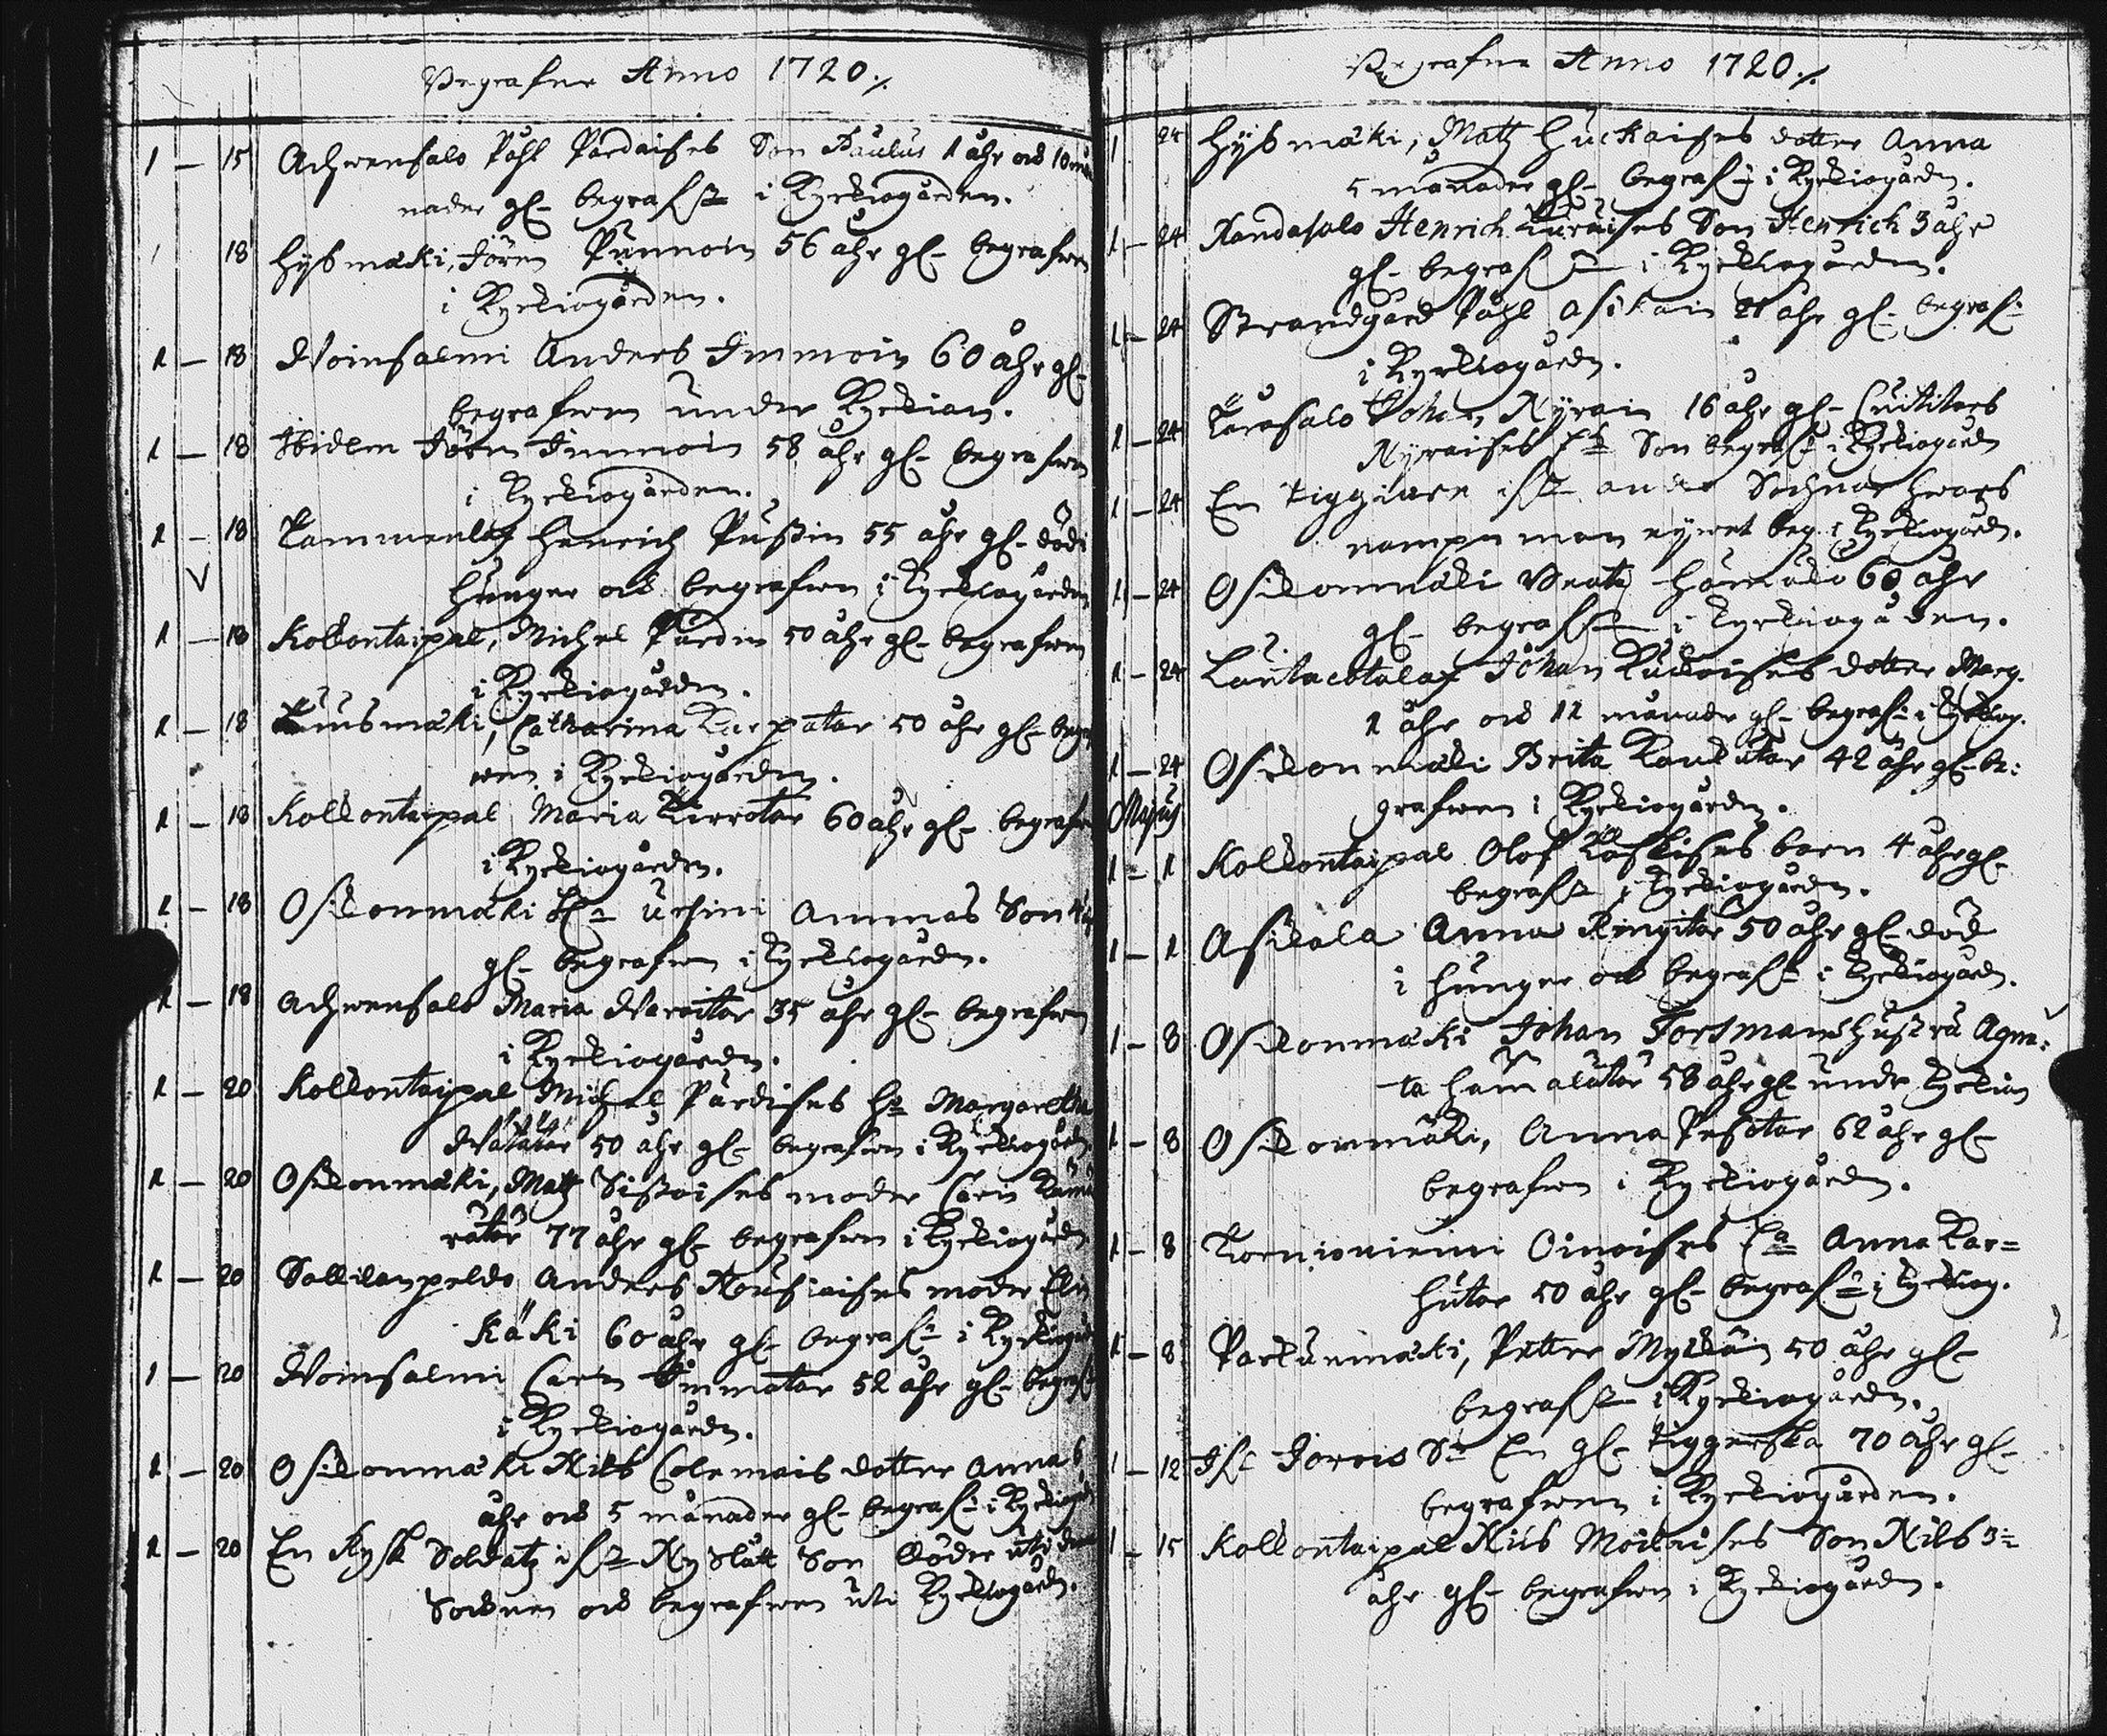 Begrafne Anno 1720./.
1 — 15 Achwensalo Påhl Pardaises Son Paulus 1 åhr och 10 må
nader gl- begrafn i Kyrkiogården.
1 18 Hysmäki, Jören Punnoin 56 åhr gl- begrafwen
i Kyrkiogården.
1 — 18 Woinsalmi Anders Immoin 60 åhr gl-
begrafwen under Kyrkian.
1 — 18 Ibidem Jören Immoin 58 åhr gl- begrafwen
i Kyrkiogården.
1 — 18 Tammenlax Henrich Pussin 55 åhr gl- död i
hunger och begrafwen i Kyrkiogården
1 — 18 Kolkontaipal, Michel Pardin 50 åhr gl- begrafwen
i Kyrkiogården.
1 — 18 Catharina Karpatar 50 åhr gl- begraf
wen i Kyrkiogården.
1 — 18 Kolkontaipal Maria Kirrotar 60 åhr gl- begrafwen
i Kyrkiogården.
1 — 18 Osikonmäki Ursini Ammas Son
gl- begrafwen i Kyrkiogården.
1 — 18 Achwensalo Maria Waroitar 35 åhr gl- begrafwen
i Kyrkiogården.
1 — 20 Kolkontaipal Michel Pardises Ha Margaretha
Wätätär 50 åhr gl- begrafwen i Kyrkiogården
1 — 20 Osikonmäki, Matz Sissoises moder Carin Kämä
rätär 77 åhr gl- begrafwen i Kyrkiogården
1 — 20 Sallilanpeldo Anders Housiaises moder Elin
Käki 60 åhr gl- begrafn i Kyrkiogård
1 — 20 Woinsalmi Carin Immotar 52 åhr gl- begraf
i Kyrkiogården.
1 — 20 Osikonmäki Nils Colemais dotter Anna 6
åhr och 5 månader gl- begrafn i Kyrkiogård
1 — 20 En Rysk Soldatz ifrn Ny Slått Son döder uti denna
Socknen och begrafwen uti Kyrkiogården.
Begrafne Anno 1720./.
1 24 Hysmäki, Matz Huckaises dotter Anna
5 månader gl- begrafn i Kyrkiogården.
1 — 24 Randasalo Henrich Kuraises Son Henrich 3 åhr
gl- begrafn i Kyrkiogården.
1 — 24 Strandgård Påhl Asikain 21 åhr gl- begrafn
i Kyrkiogården.
1 — 24 Johan Nyrain 16 åhr gl-
Nyraises Son begrafn i Kyrkiogård
1 — 24 En tiggiare ifrn andra Sochnar hwars
nampn man ey wet beg. i Kyrkiogården.
1 — 24 Osikonmäki Beata 60 åhr
gl- begrafn i Kyrkiogården.
1 — 24 Johan Kuckoises dotter Marg.
1 åhr och 11 månader gl- begrafn i Kyrkiog.
1 — 24 Osikonmäki Brita Kaukutar 42 åhr gl- be:
grafwen i Kyrkiogården.
Majus
1 — 1 Kolkontaipal Olof Koskises barn 4 åhr gl-
begrafn i Kyrkiogården.
1 — 1 Asikala Anna Ringitar 50 åhr gl- död
i hunger och begrafn i Kyrkiogården.
1 — 8 Osikonmäki Johan Forsmans hustru Agne:
ta Hämälätär 58 åhr gl- under Kyrkian
1 — 8 Osikonmäki, Anna Pesotar 62 åhr gl-
begrafwen i Kyrkiogården.
1 — 8 Torniониemi Oinoises Anna Kar=
hutar 50 åhr gl- begrafn i Kyrkiog.
1 — 8 Parkunmäki, Petter Mykkäin 50 åhr gl-
begrafn i Kyrkiogården.
1 — 12 Ifrn Jorois Sn En gl- tiggerska 70 åhr gl-
begrafwen i Kyrkiogården.
1 — 15 Kolkontaipal Nils Moilaises Son Nils 3=
åhr gl- begrafwen i Kyrkiogården.